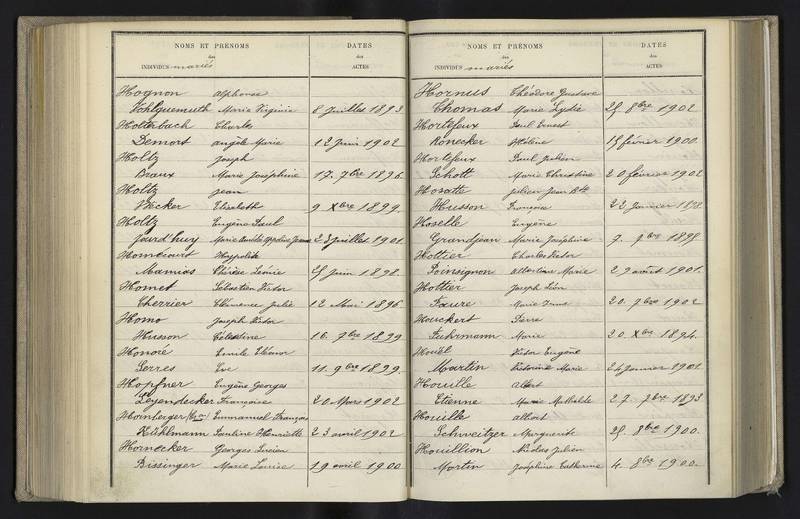 NOMS ET PRÉNOMS
des
INDIVIDUS mariés
DATES
des
ACTES
Hognon Alphonse
Vohlguemuth Marie Virginie 8 Juillet 1893
Holterbach Charles
Demort Angèle Marie 12 Juin 1902
Holtz Joseph
Braux Marie Joséphine 17. 7bre 1896
Holtz Jean
Becker Elisabeth 9 Xbre 1899.
Holtz Eugène Paul
Jourd'huy Marie 23 Juillet 1901
Homécourt Hyppolite
Mamias Thérèse Léonie 25 Juin 1898.
Homet Sébastien Victor
Cherrier Clémence Julie 12 Mai 1896
Homo Joseph Victor
Husson Célestine 16. 7bre 1899
Honoré Emile Eléonor
Serres Eve 11. 9bre 1899.
Hopfner Eugène Georges
Leyendecker Françoise 20 Mars 1902
Hornberger Emmanuel François
Kühlmann Pauline Henriette 23 avril 1902
Hornecker Georges Lucien
Bissinger Marie Louise 19 avril 1900
NOMS ET PRÉNOMS
des
INDIVIDUS mariés
DATES
des
ACTES
Hornus Théodore Gustave
Thomas Marie Lydie 25. 8bre 1902
Hortefeux Paul Ernest
Ronecker Hélène 15 février 1900.
Hortefeux Paul Julien
Schott Marie Christine 20 février 1902
Hosatte Julien Jean Bte
Husson Françoise 22 Janvier
Hoselle Eugène
Grandjean Marie Joséphine 7. 9bre 1899
Hottier Charles Victor
Poinsignon Albertine Marie 29 août 1901.
Hottier Joseph Léon
Faure Marie Irma 20. 7bre 1902
Houckert Pierre
Fuhrmann Marie 20 Xbre 1894.
Houël Victor Eugène
Martin Victorine Marie 24 Janvier 1901
Houille Albert
Etienne Marie Mathilde 27. 7bre 1893
Houille Albert
Schweitzer Marguerite 25. 8bre 1900.
Houillion Nicolas Julien
Martin Joséphine Catherine 4. 8bre 1900.